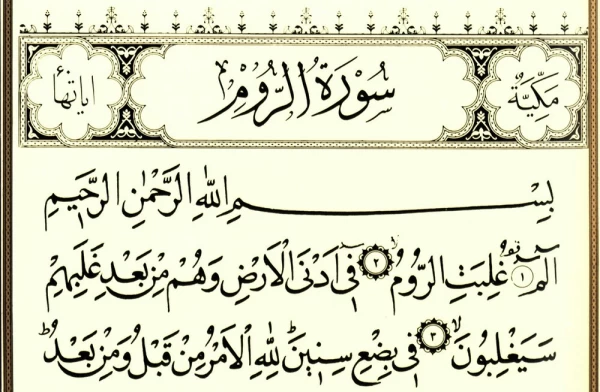 مَكِّيَّةٌ سُورَةُ الرُّومِ اٰيَاتُهَا ٦٠
بِسْمِ اللّٰهِ الرَّحْمٰنِ الرَّحِيمِ
الٓمٓ ۝١ غُلِبَتِ الرُّومُۙ ۝٢ فٖٓى اَدْنَى الْاَرْضِ وَهُمْ مِنْ بَعْدِ غَلَبِهِمْ
سَيَغْلِبُونَۙ ۝٣ فٖى بِضْعِ سِنٖينَؕ لِلّٰهِ الْاَمْرُ مِنْ قَبْلُ وَمِنْ بَعْدُؕ